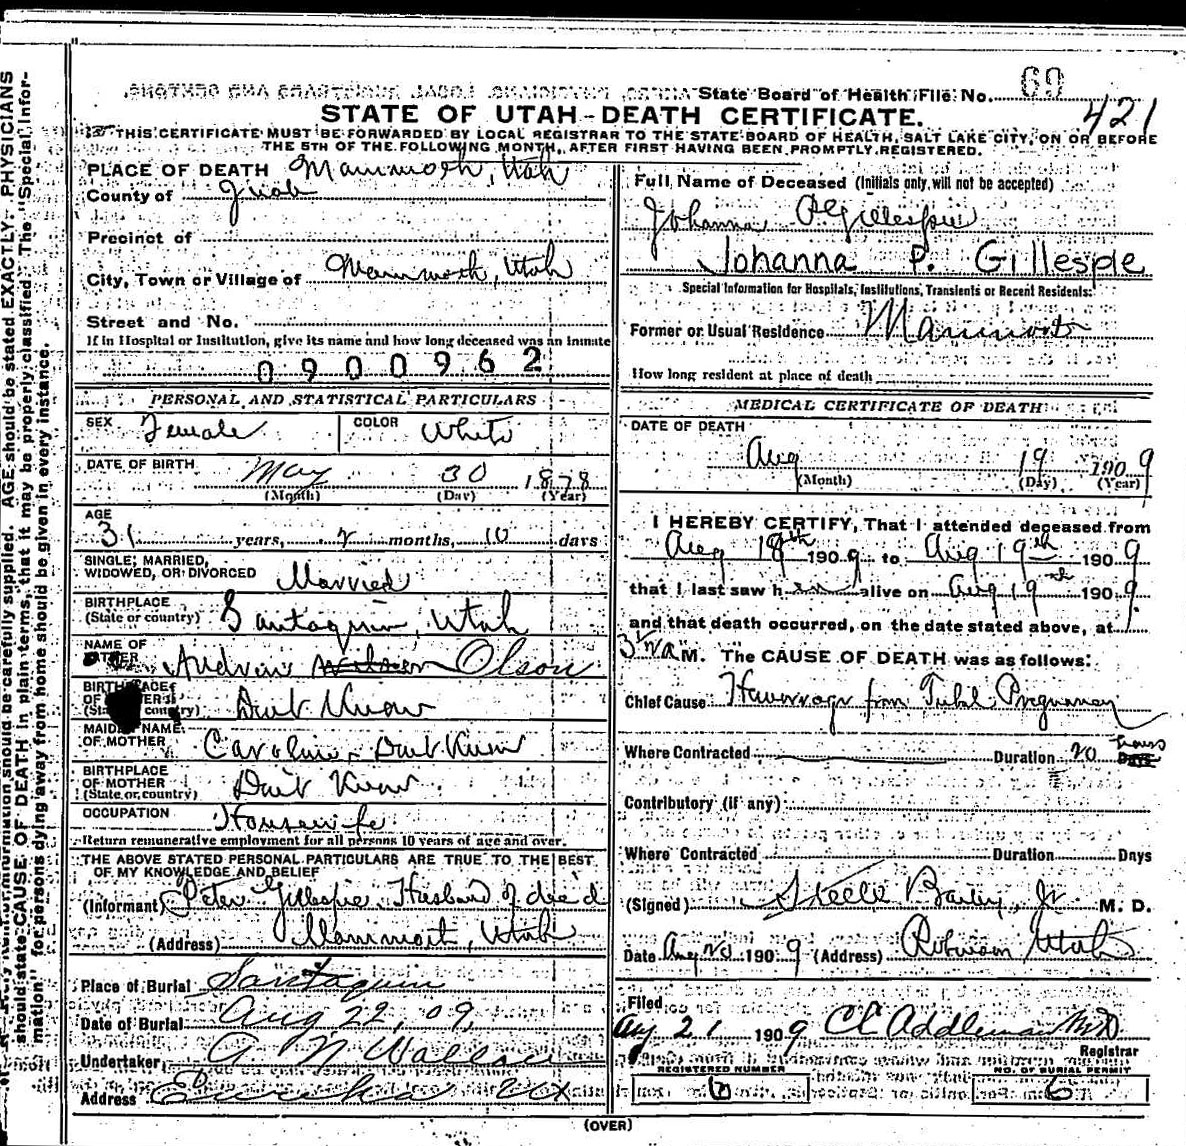 State Board of Health File No. 69
421
STATE OF UTAH-DEATH CERTIFICATE.
THIS CERTIFICATE MUST BE FORWARDED BY LOCAL REGISTRAR TO THE STATE BOARD OF HEALTH, SALT LAKE CITY, ON OR BEFORE
THE 5TH OF THE FOLLOWING MONTH, AFTER FIRST HAVING BEEN PROMPTLY REGISTERED.
PLACE OF DEATH Mammoth, Utah
County of Juab
Precinct of
City, Town or Village of Mammoth, Utah
Street and No.
If in Hospital or Institution, give its name and how long deceased was an inmate
0900962
PERSONAL AND STATISTICAL PARTICULARS
SEX Female COLOR White
DATE OF BIRTH May 30 1878
(Month) (Day) (Year)
AGE
31 years, 2 months, 10 days
SINGLE, MARRIED,
WIDOWED, OR DIVORCED Married
BIRTHPLACE
(State or country) Santaquin, Utah
NAME OF
FATHER Andrew Olson
BIRTHPLACE
OF FATHER
(State or country) Dont Know
MAIDEN NAME
OF MOTHER Caroline, Dont Know
BIRTHPLACE
OF MOTHER
(State or country) Dont Know
OCCUPATION Housewife
Return remunerative employment for all persons 10 years of age and over.
THE ABOVE STATED PERSONAL PARTICULARS ARE TRUE TO THE BEST
OF MY KNOWLEDGE AND BELIEF
(Informant) Peter Gillespie, Husband of dec'd
(Address) Mammoth, Utah
Place of Burial Santaquin
Date of Burial Aug 22, 09,
Undertaker A N Wallace
Address Eureka Ut
Full Name of Deceased (Initials only will not be accepted)
Johanna P Gillespie
Johanna P. Gillespie
Special Information for Hospitals, Institutions, Transients or Recent Residents:
Former or Usual Residence Mammoth
How long resident at place of death
MEDICAL CERTIFICATE OF DEATH
DATE OF DEATH
Aug 19 1909
(Month) (Day) (Year)
I HEREBY CERTIFY, That I attended deceased from
Aug 18th 1909 to Aug 19th 1909
that I last saw her alive on Aug 19th 1909.
and that death occurred, on the date stated above, at
M. The CAUSE OF DEATH was as follows:
Chief Cause Hemorrage from Tubal Pregnancy
Where Contracted Duration 20 hours Days
Contributory (if any)
Where Contracted Duration Days
(Signed) Steele Bailey, Jr M. D.
Date Aug 20 1909 (Address) Robinson Utah
Filed
Aug 21 1909 CE Addleman MD
Registrar
REGISTERED NUMBER 6 NO. OF BURIAL PERMIT 6
(OVER)
AGE should be stated EXACTLY. PHYSICIANS
should state CAUSE OF DEATH in plain terms, that it may be properly classified. The "Special Infor-
mation" for persons dying away from home should be given in every instance.